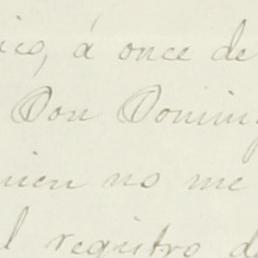 ico, á once de
Don Doming
uien no me
l registro de